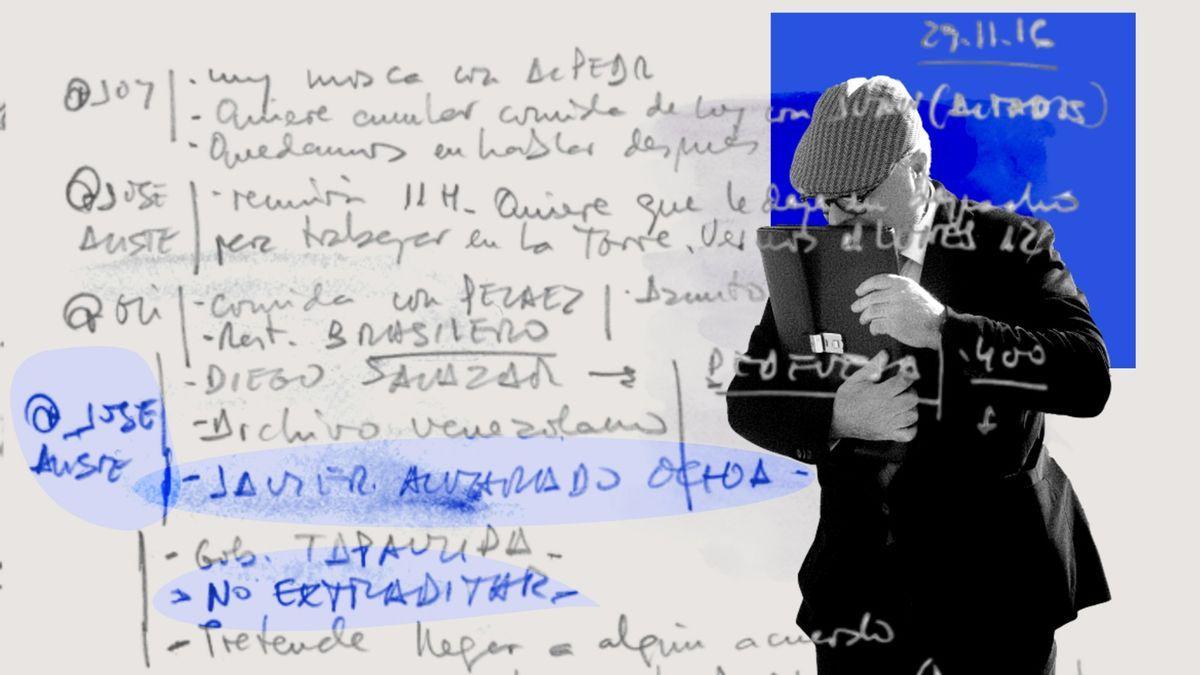 29.11.16
@JOY - muy mosca con ACPEDR
- Quiere anular comida de hoy con JUAN (ALTADIS)
- Quedamos en hablar después
@JOSE ALISTE - reunión 11H. Quiere que le dejen despacho
para trabajar en la Torre. Vernos el lunes 12
- Comida con PELAEZ - Asunto
- Rest. BRASILERO
- DIEGO SALAZAR → PEDEVESA - 400
- Archivo venezolano
@JOSE ALISTE - JAVIER ALVARADO OCHOA -
- Gob. TAPAULIPA -
> NO EXTRADITAR -
- Pretende llegar a algún acuerdo